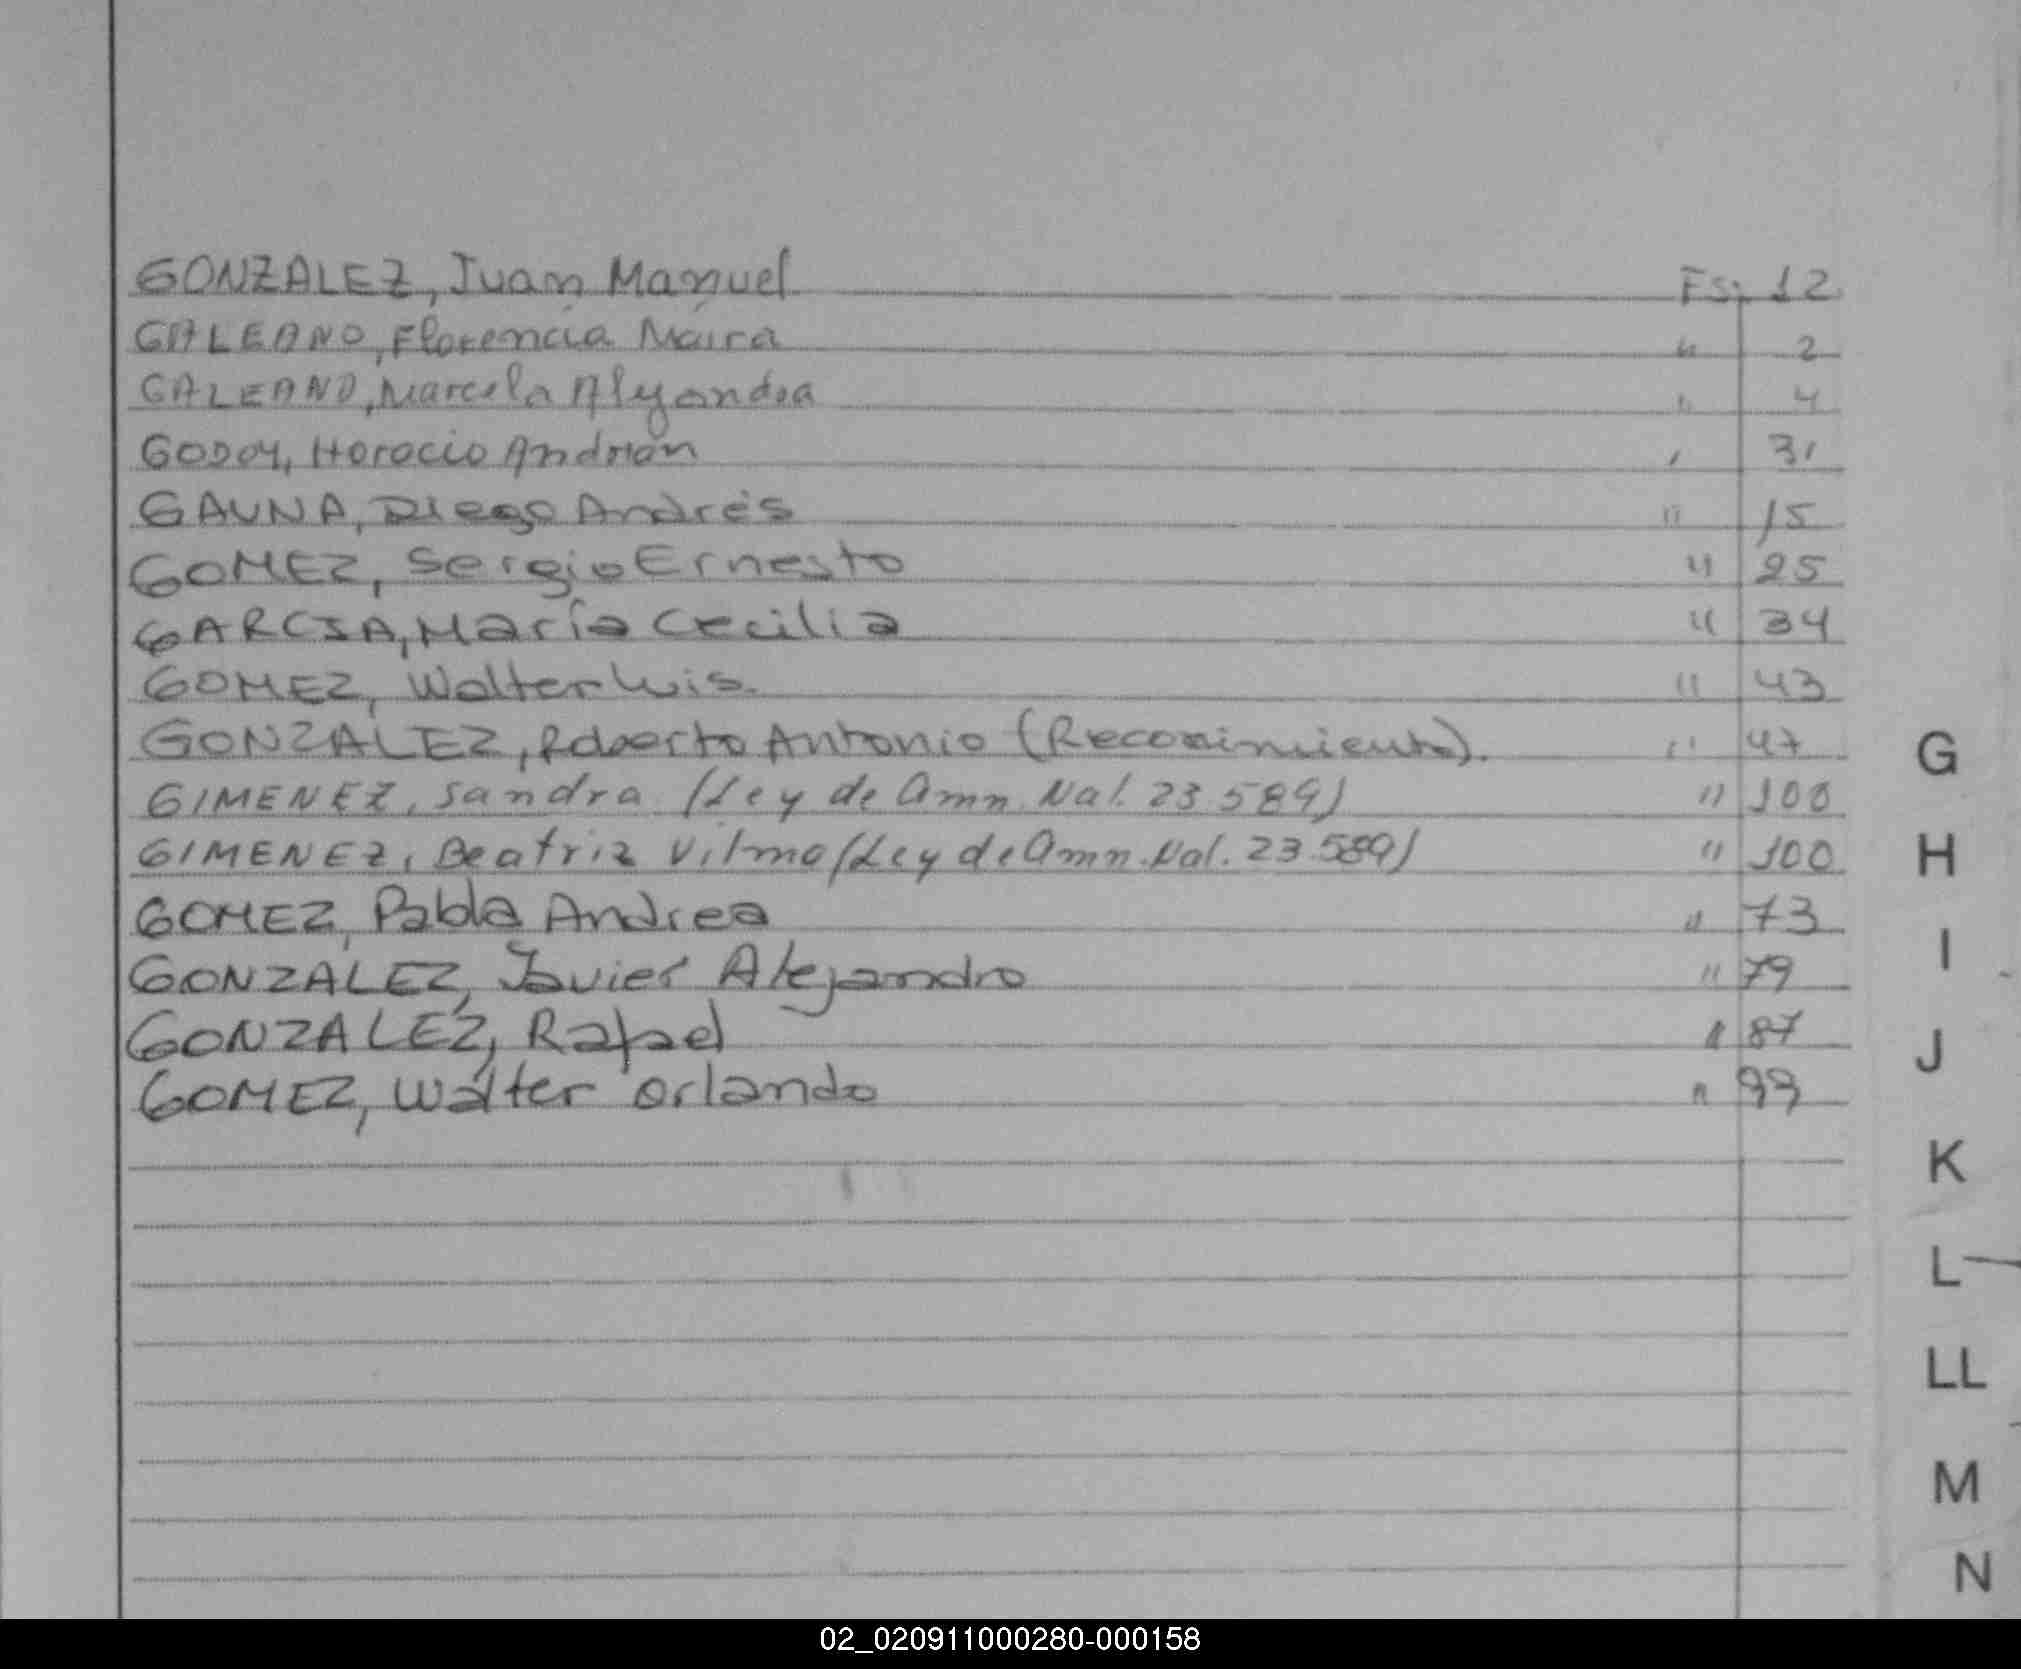 GONZALEZ, Juan Manuel Fs. 12
GALEANO, Florencia Maira " 2
GALEANO, Marcela Alejandra " 4
GODOY, Horacio Andrián , 31
GAUNA, Diego Andrés " 15
GOMEZ, Sergio Ernesto " 25
GARCIA, María Cecilia " 34
GOMEZ, Walter Luis. " 43
GONZALEZ, Roberto Antonio (Reconimiento). " 47
GIMENEZ, Sandra (Ley de Amn. Nal. 23.589) " 100
GIMENEZ, Beatriz Vilma (Ley de Amn. Nal. 23.589) " 100
GOMEZ, Pabla Andrea " 73
GONZALEZ, Javier Alejandro " 79
GONZALEZ, Rafael " 87
GOMEZ, Walter Orlando " 99
G
H
I
J
K
L
LL
M
N
02_020911000280-000158